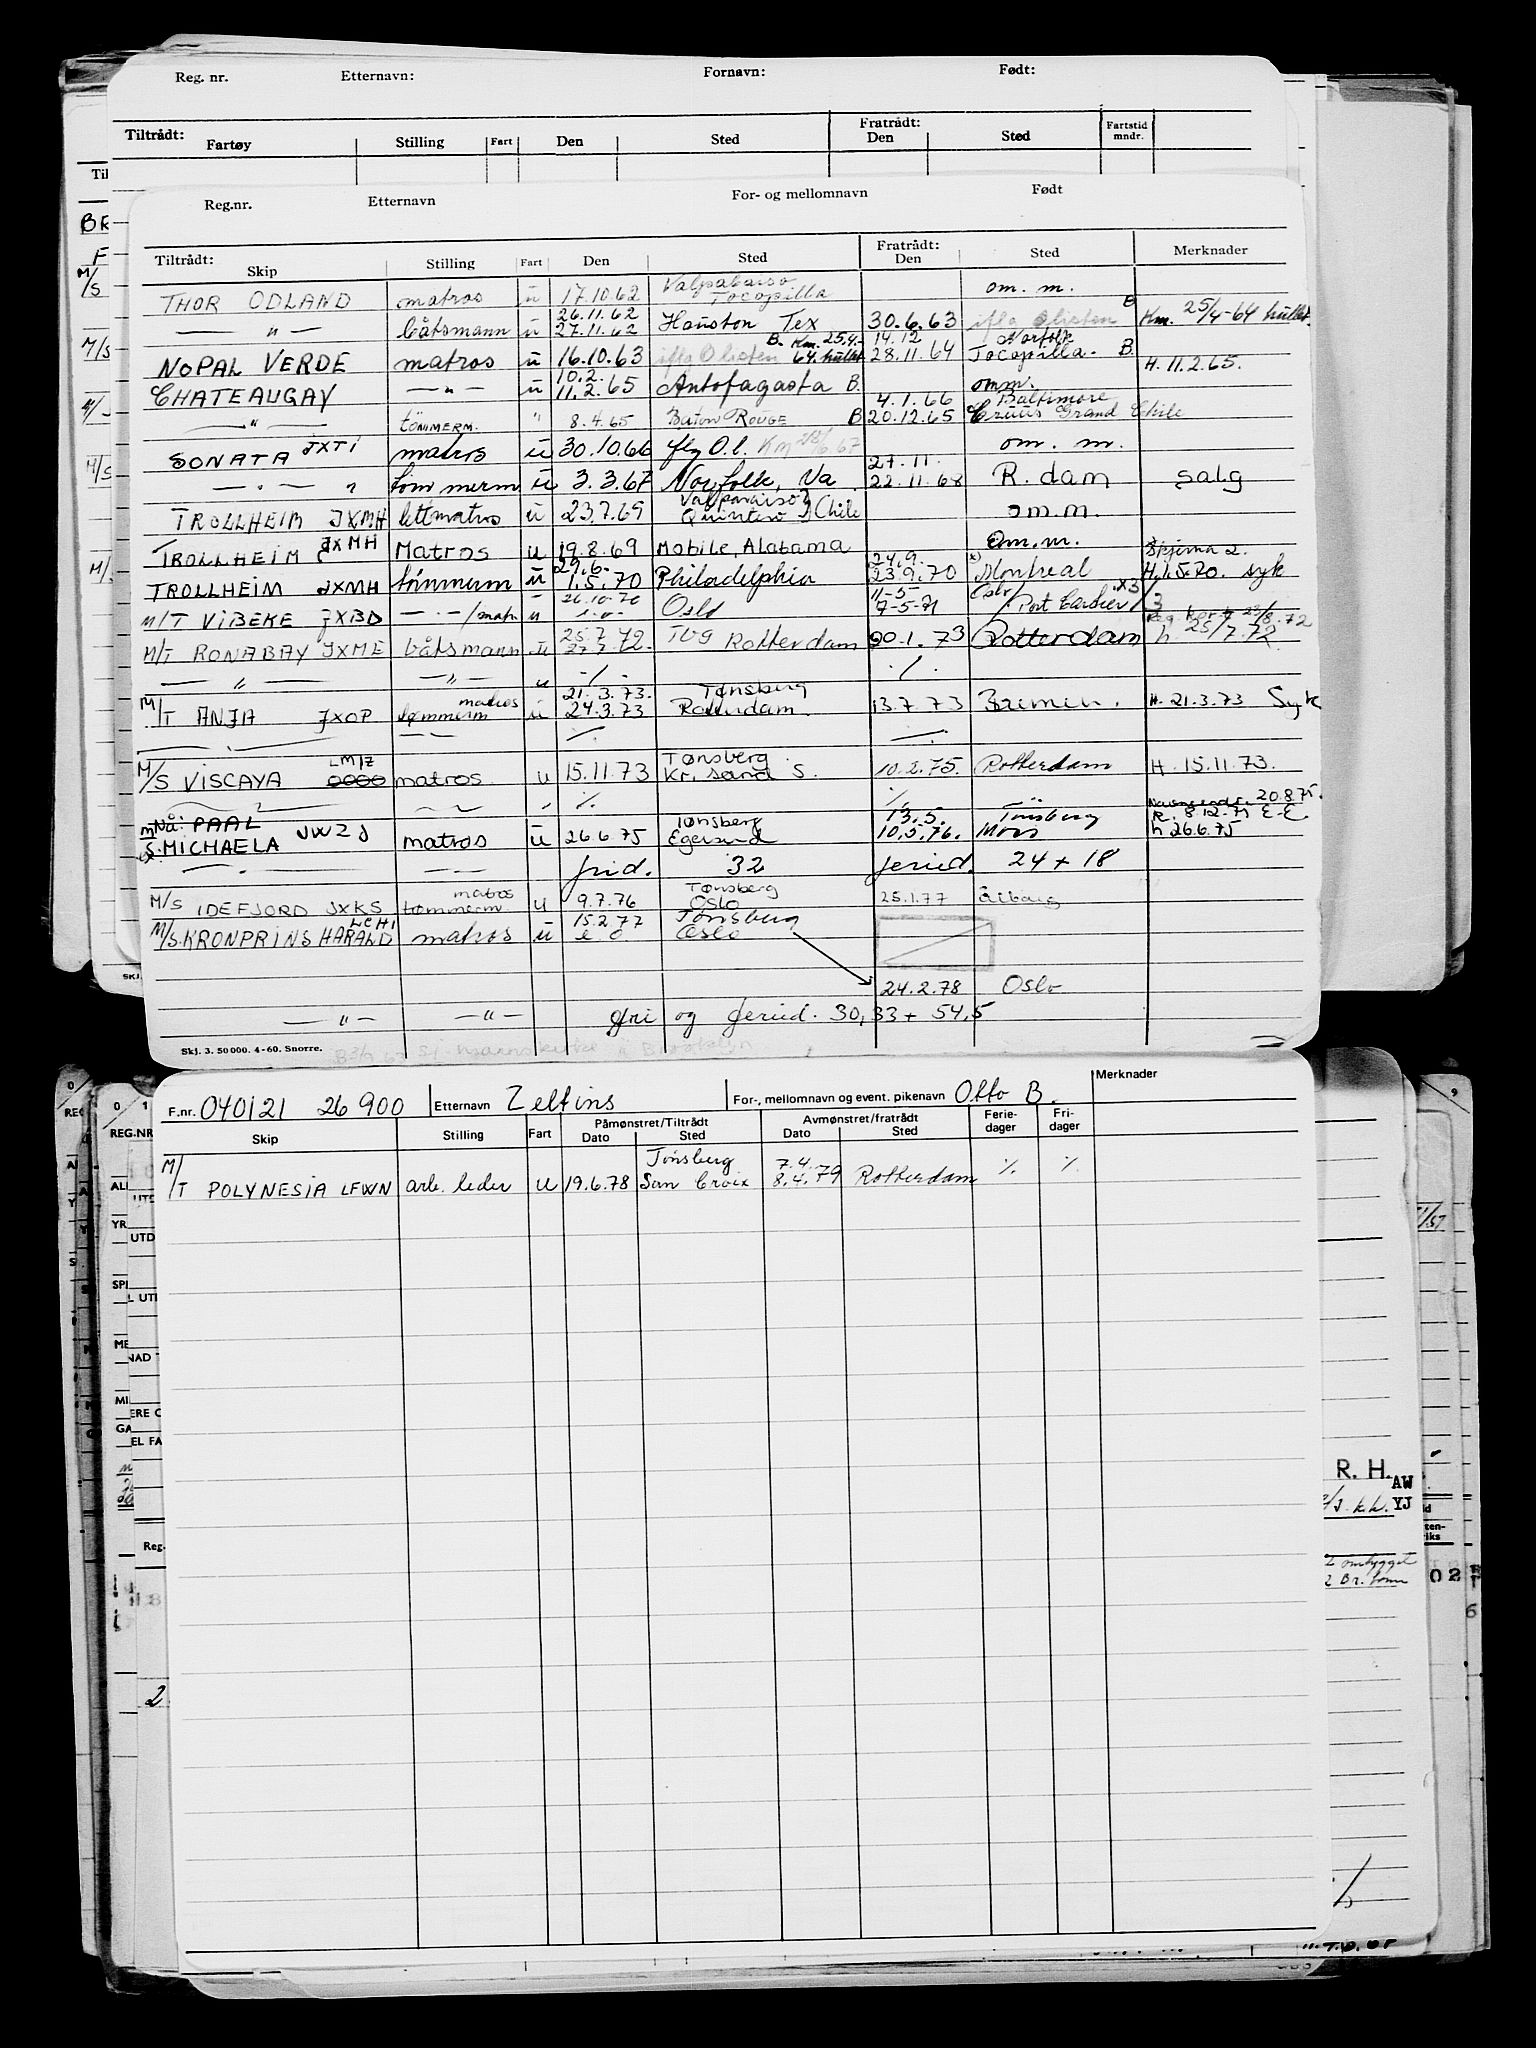 Reg. nr. Etternavn: Fornavn: Født:
Tiltrådt: Fratrådt: Fartstid
Fartøy Stilling Fart Den Sted Den Sted mndr.
Reg.nr. Etternavn For- og mellomnavn Født
Tiltrådt: Fratrådt:
Skip Stilling Fart Den Sted Den Sted Merknader
Valparaiso
THOR ODLAND matros u 17.10.62 Tocopilla om. m.
26.11.62
— " — båtsmann u 27.11.62 Houston Tex 30.6.63 iflg Olisten B Km. 25/4-64 hullet.
B. Km. 25.4.- 14.12 Norfolk
NOPAL VERDE matros u 16.10.63 iflg Olisten 64. hullet 28.11.64 Tocopilla. B. H. 11.2.65.
10.2.
CHATEAUGAY — " — u 11.2.65 Antofagasta B. omm.
4.1.66 Baltimore
— " — tömmerm. " 8.4.65 Baton Rouge B 20.12.65 Cruus Grand Chile
SONATA JXTI matros u 30.10.66 flg O.l. om. m.
27.11.
— " — tömmerm u 3.3.67 Norfolk, Va. 22.11.68 R. dam salg
Valparaiso
TROLLHEIM JXMH lettmatros u 23.7.69 Quintero Chile om.m.
TROLLHEIM JXMH Matros u 19.8.69 Mobile, Alabama Om.m. Skjema 2.
29.6. 24.9.
TROLLHEIM JXMH tömmerm u 1.5.70 Philadelphia 23.9.70 x) Montreal H. 1.5.70. syk
26.10.70 11-5- Oslo
M/T VIBEKE JXBD — " — /matr u i.o- Oslo 7-5-71 /Port Cartier x3/ 3
25.7.72 Reg. kort 23/8.72
M/T RONABAY JXME båtsmann u 27.7.72. Tbg Rotterdam 20.1.73 Rotterdam h 25/7.72.
— " — — " — u -/- ./.
21.3.73. Tønsberg
M/T ANJA JXOP matros tømmerm u 24.3.73 Rotterdam. 13.7.73 Bremen. H. 21.3.73 Syk
LMIZ Tønsberg
M/S VISCAYA OOOO matros u 15.11.73 Kr. sand S. 10.2.75. Rotterdam H. 15.11.73.
20.8.75.
Nå: PAAL Tønsberg 13.5. Tönsberg R. 8.12.71 E-E
M/S. MICHAELA JWZJ matros u 26.6.75 Egersund 10.5.76. Moss h 26.6.75
— " — — " — frid. 32 feried. 24 + 18
matros Tønsberg
M/S IDEFJORD JXKS tømmerm u 9.7.76 Oslo 25.1.77 Ålborg
LCHI 15.2.77 Tönsberg
M/S. KRONPRINS HARALD matros u i.o Oslo
24.2.78 Oslo
— " — — " — fri og feried. 30,33 + 54,5
Skj. 3. 50 000. 4-60. Snorre.
F.nr. 040121 26 900 Etternavn Zeltins For-, mellomnavn og event. pikenavn Otto B. Merknader
Påmønstret/Tiltrådt Avmønstret/fratrådt Ferie- Fri-
Skip Stilling Fart Dato Sted Dato Sted dager dager
Tönsberg 7.4.
M/T POLYNESIA LFWN arb. leder u 19.6.78 San Croix 8.4.79 Rotterdam ./. ./.
R. H. AW
YJ